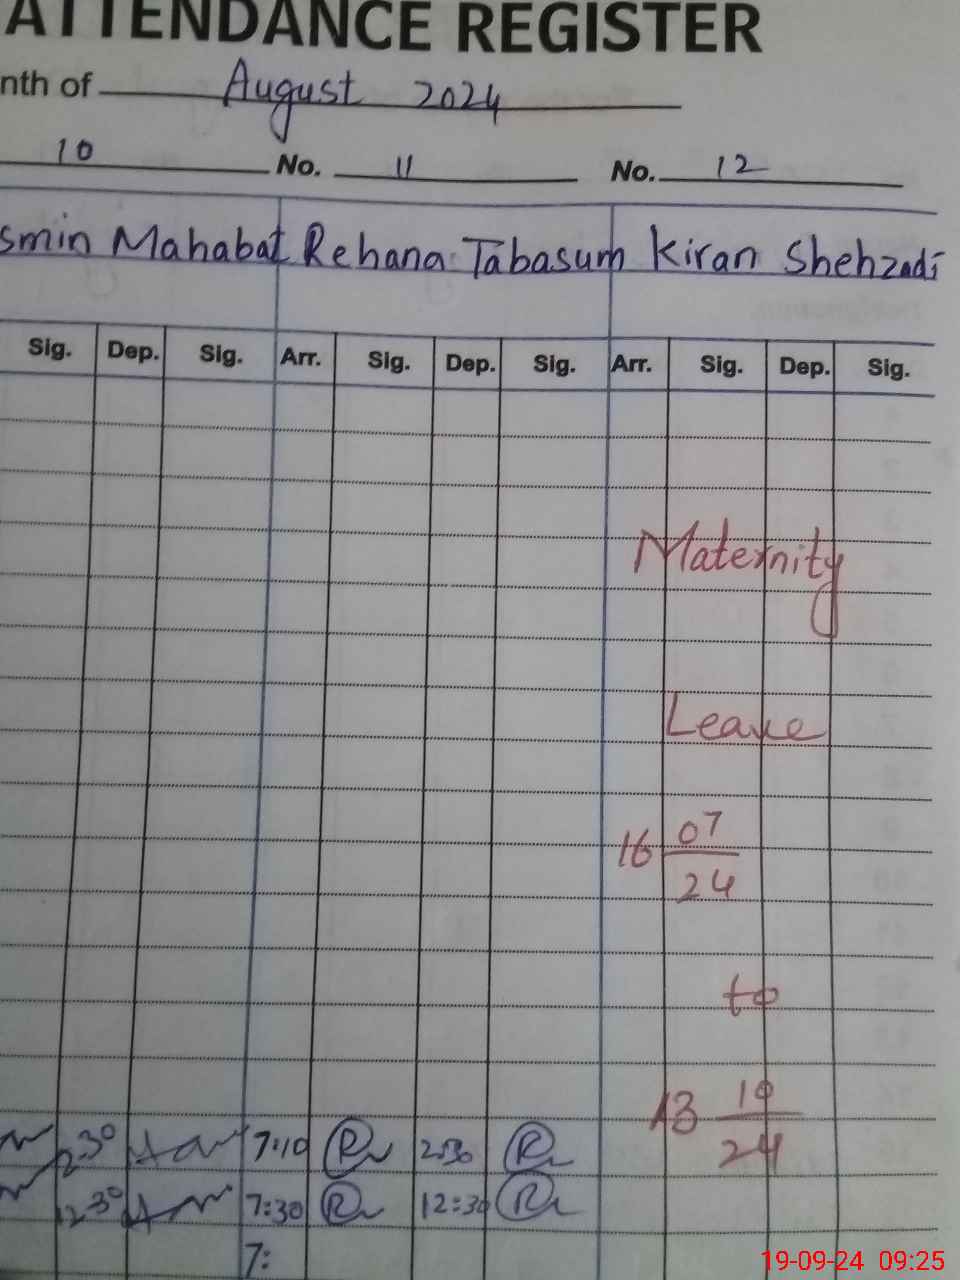 ATTENDANCE REGISTER
nth of August 2024
10 No. 11 No. 12
smin Mahabat Rehana Tabasum Kiran Shehzadi
Sig. Dep. Sig. Arr. Sig. Dep. Sig. Arr. Sig. Dep. Sig.
Maternity
Leave
16 07
24
to
13 10
24
1230 7:10 R 2:30 R
1230 7:30 R 12:30 R
7:
19-09-24 09:25